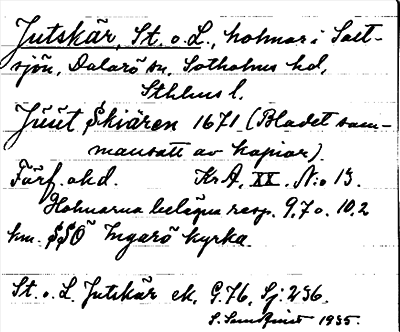 Jutskär, St. o. L., holmar i Salt-
sjön, Dalarö sn, Sotholms hd,
Sthlms l.
Juut Skiären 1671 (Bladet sam-
mansatt av kopior).
Förf. okd. Kr A, XX. N:o 13.
Holmarna belägna resp. 9,7 o. 10,2
km. SSÖ Ingarö kyrka.
St. o. L. Jutskär ek. G. 76, Sj: 236.
S. 1935.